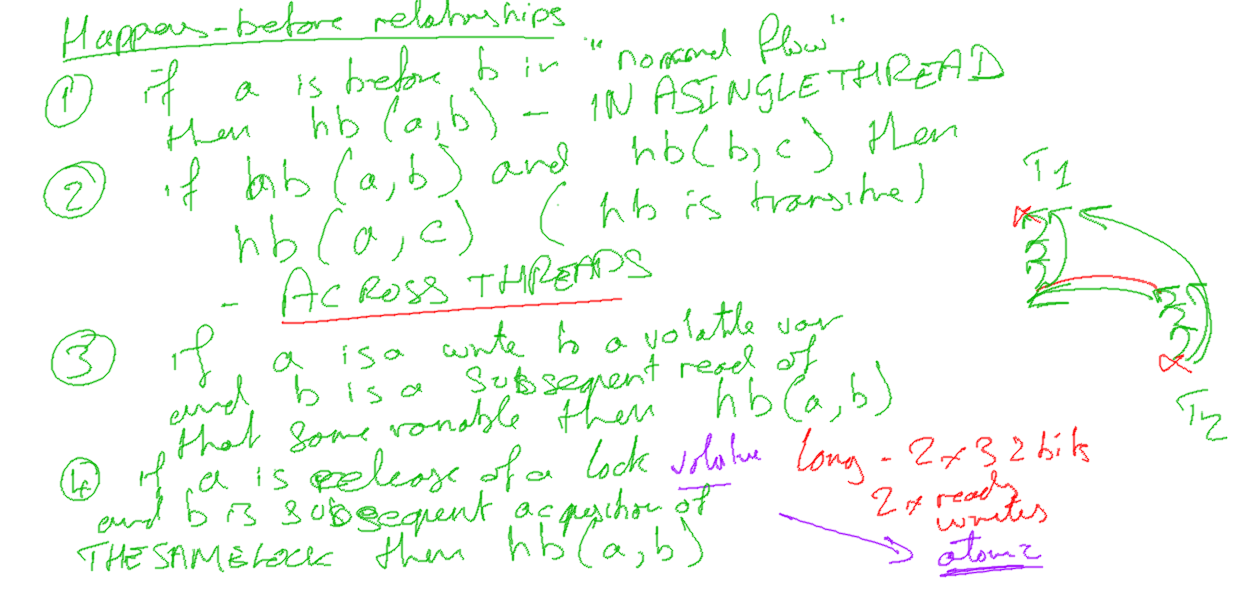 Happens-before relationships
① if a is before b in "normal flow"
then hb (a,b) - IN A SINGLE THREAD
② if hb (a,b) and hb(b,c) then
hb (a,c) (hb is transitive)
- ACROSS THREADS
③ if a is a write to a volatile var
and b is a subsequent read of
that same variable then hb(a,b)
④ if a is release of a lock
and b is subsequent acquisition of
THE SAME LOCK then hb(a,b)
T1
T2
volatile long - 2 x 32 bits
2 x reads
writes
atomic